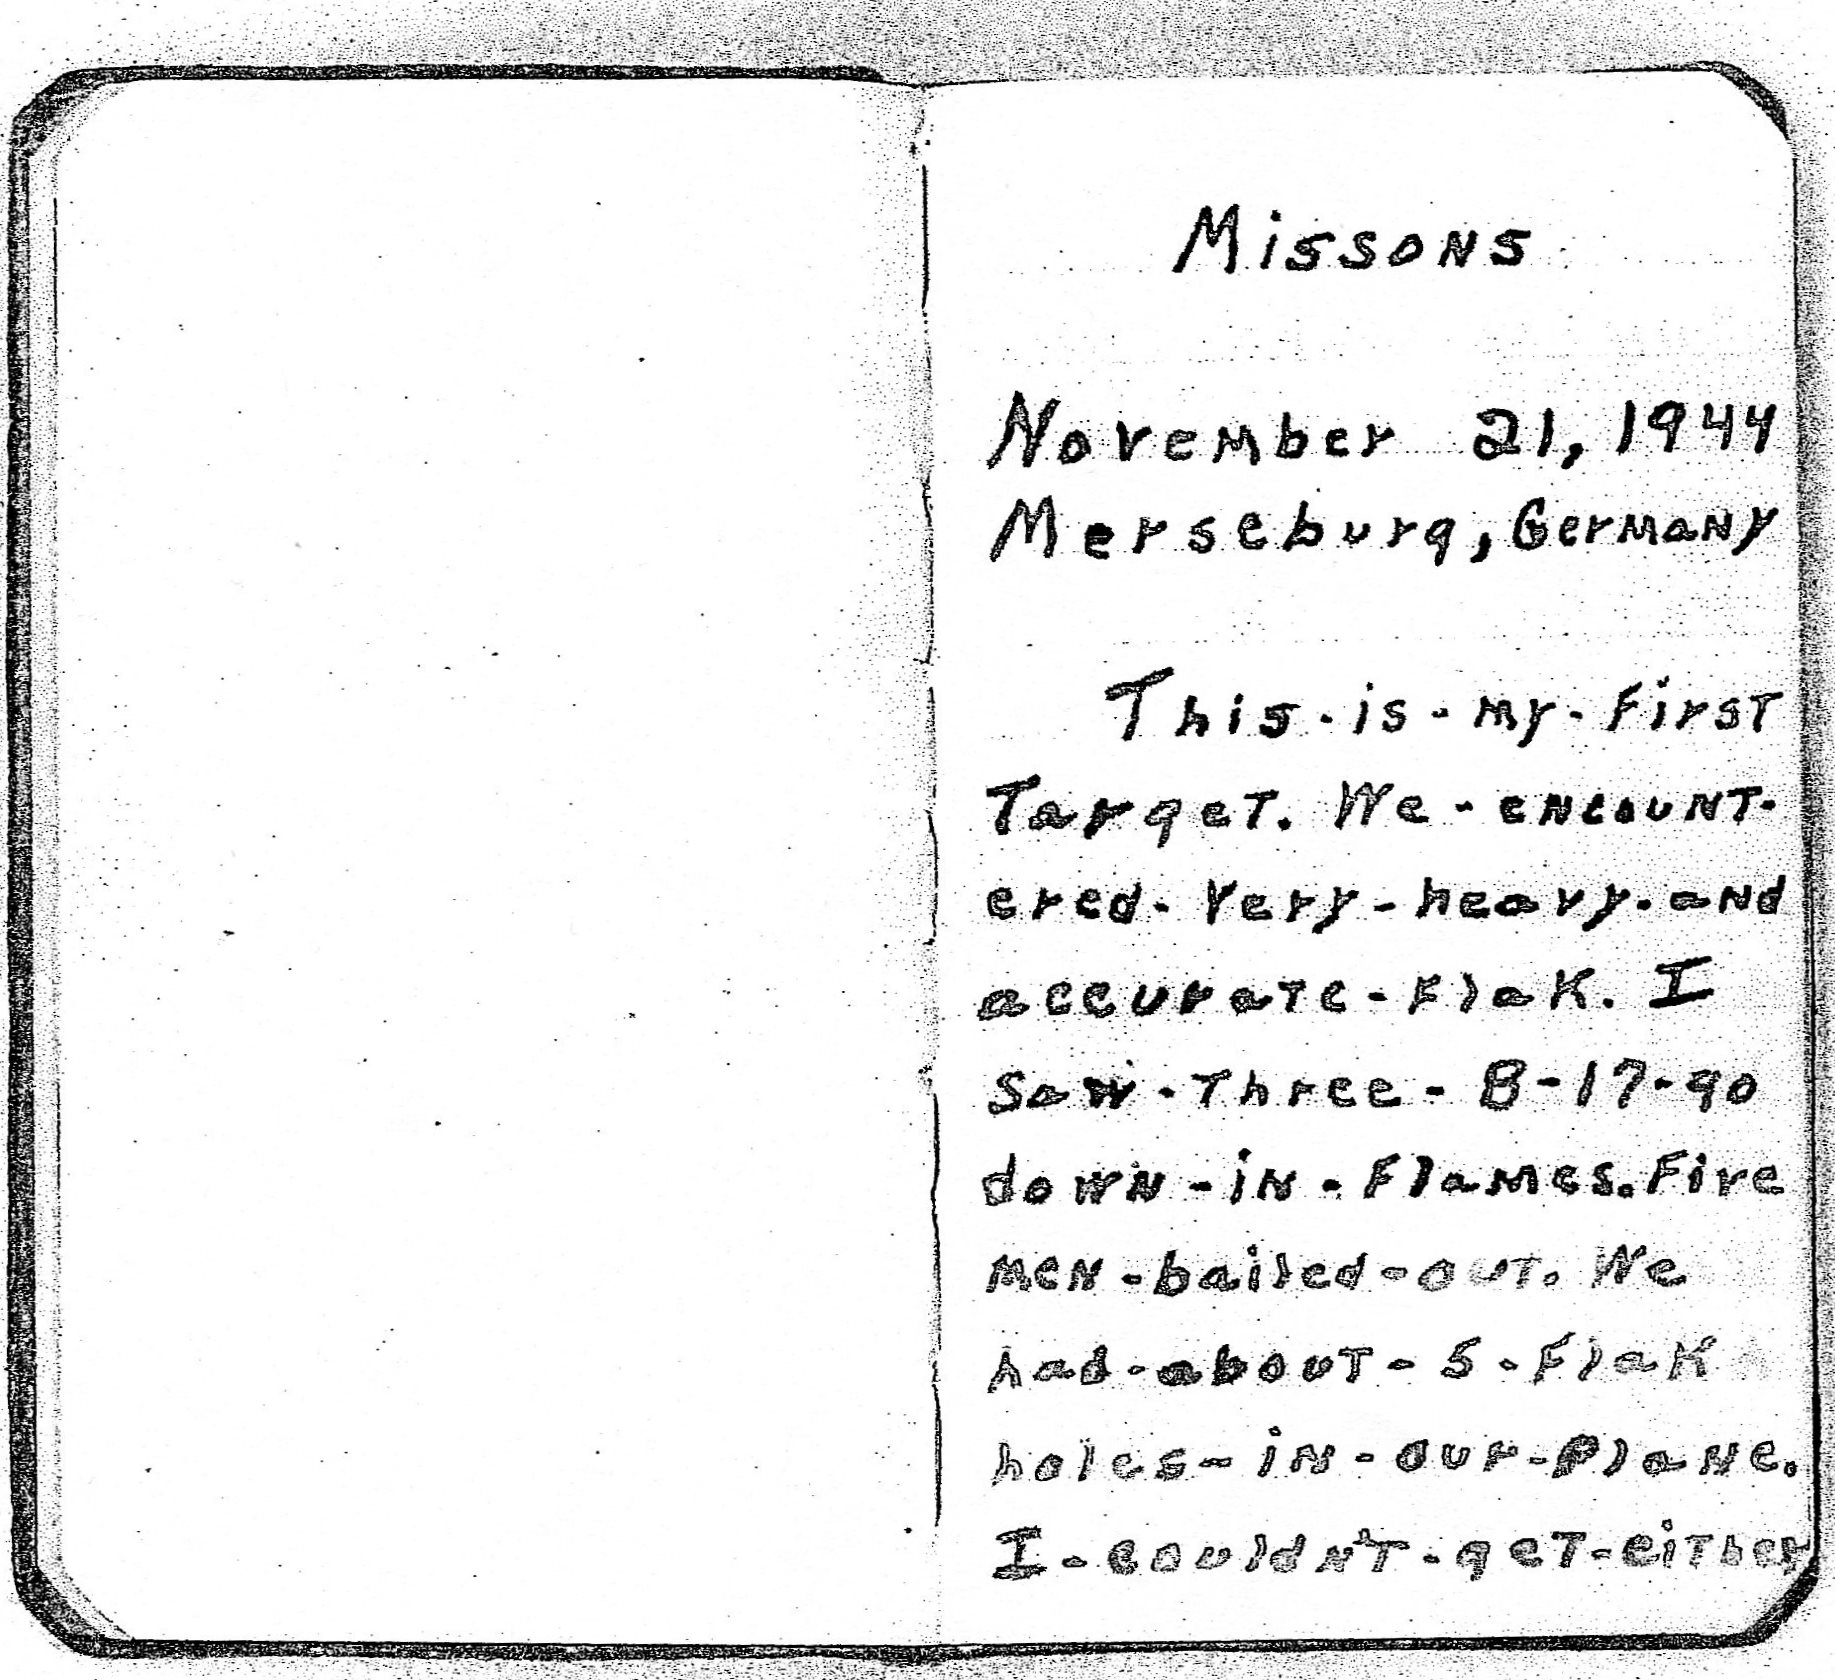 Missons
November 21, 1944
Merseburg, Germany
This-is-my-first
Target. We-encount-
ered-very-heavy-and
accurate-flak. I
saw-three-B-17-go
down-in-flames. Five
men-bailed-out. We
had-about-5-flak
holes-in-our-plane.
I-couldn't-get-either